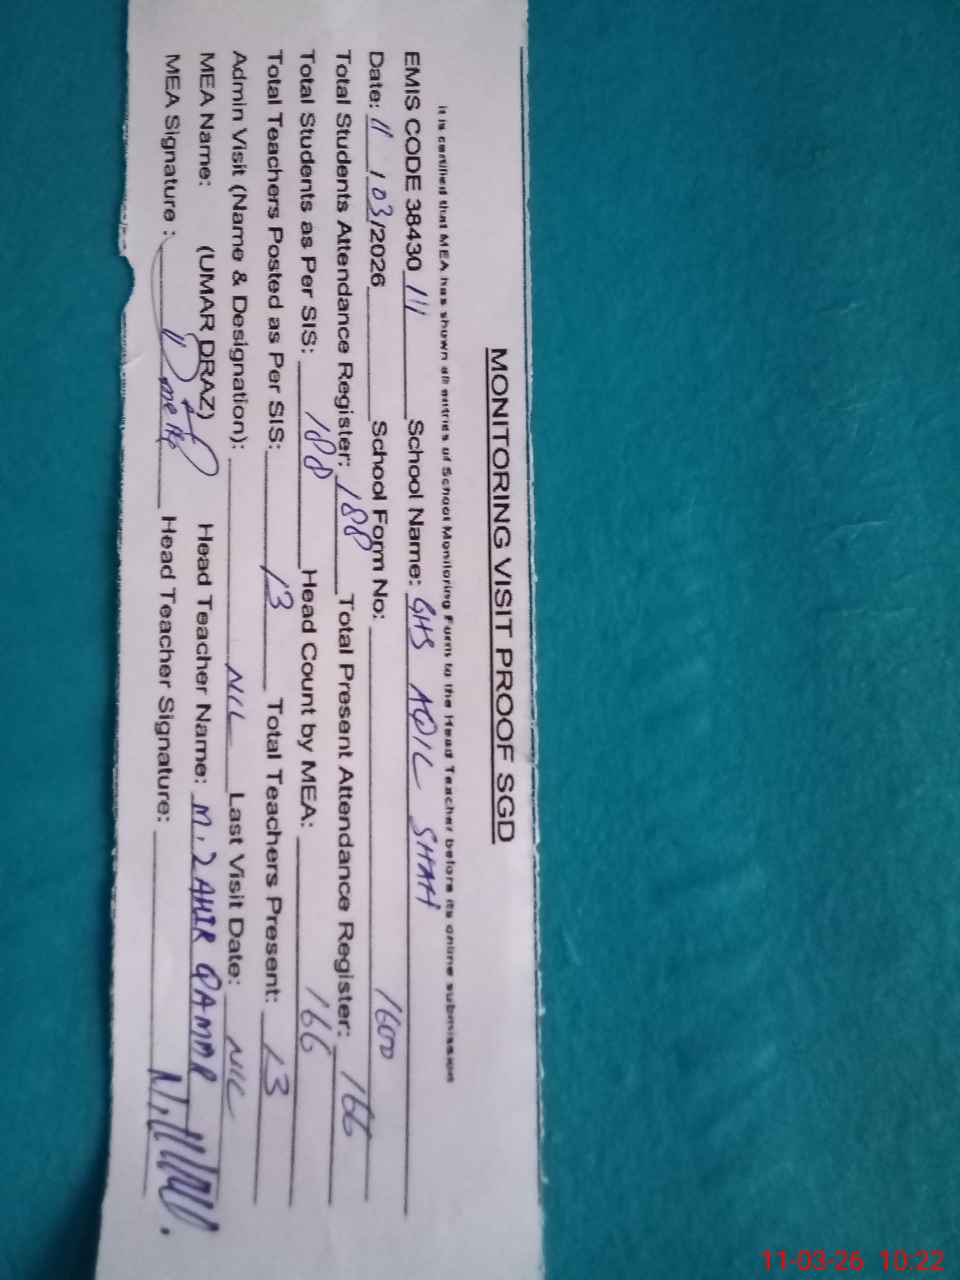 MONITORING VISIT PROOF SGD
It is certified that MEA has shown all entries of School Monitoring Form to the Head Teacher before its online submission
EMIS CODE 38430 111 School Name: GHS AQIL SHAH
Date: 11 / 03/2026 School Form No: 1600
Total Students Attendance Register: 188 Total Present Attendance Register: 166
Total Students as Per SIS: 188 Head Count by MEA: 166
Total Teachers Posted as Per SIS: 13 Total Teachers Present: 13
Admin Visit (Name & Designation): NIL Last Visit Date: NIL
MEA Name: (UMAR DRAZ) Head Teacher Name: M. ZAHIR QAMAR
MEA Signature : Head Teacher Signature:
11-03-26 10:22